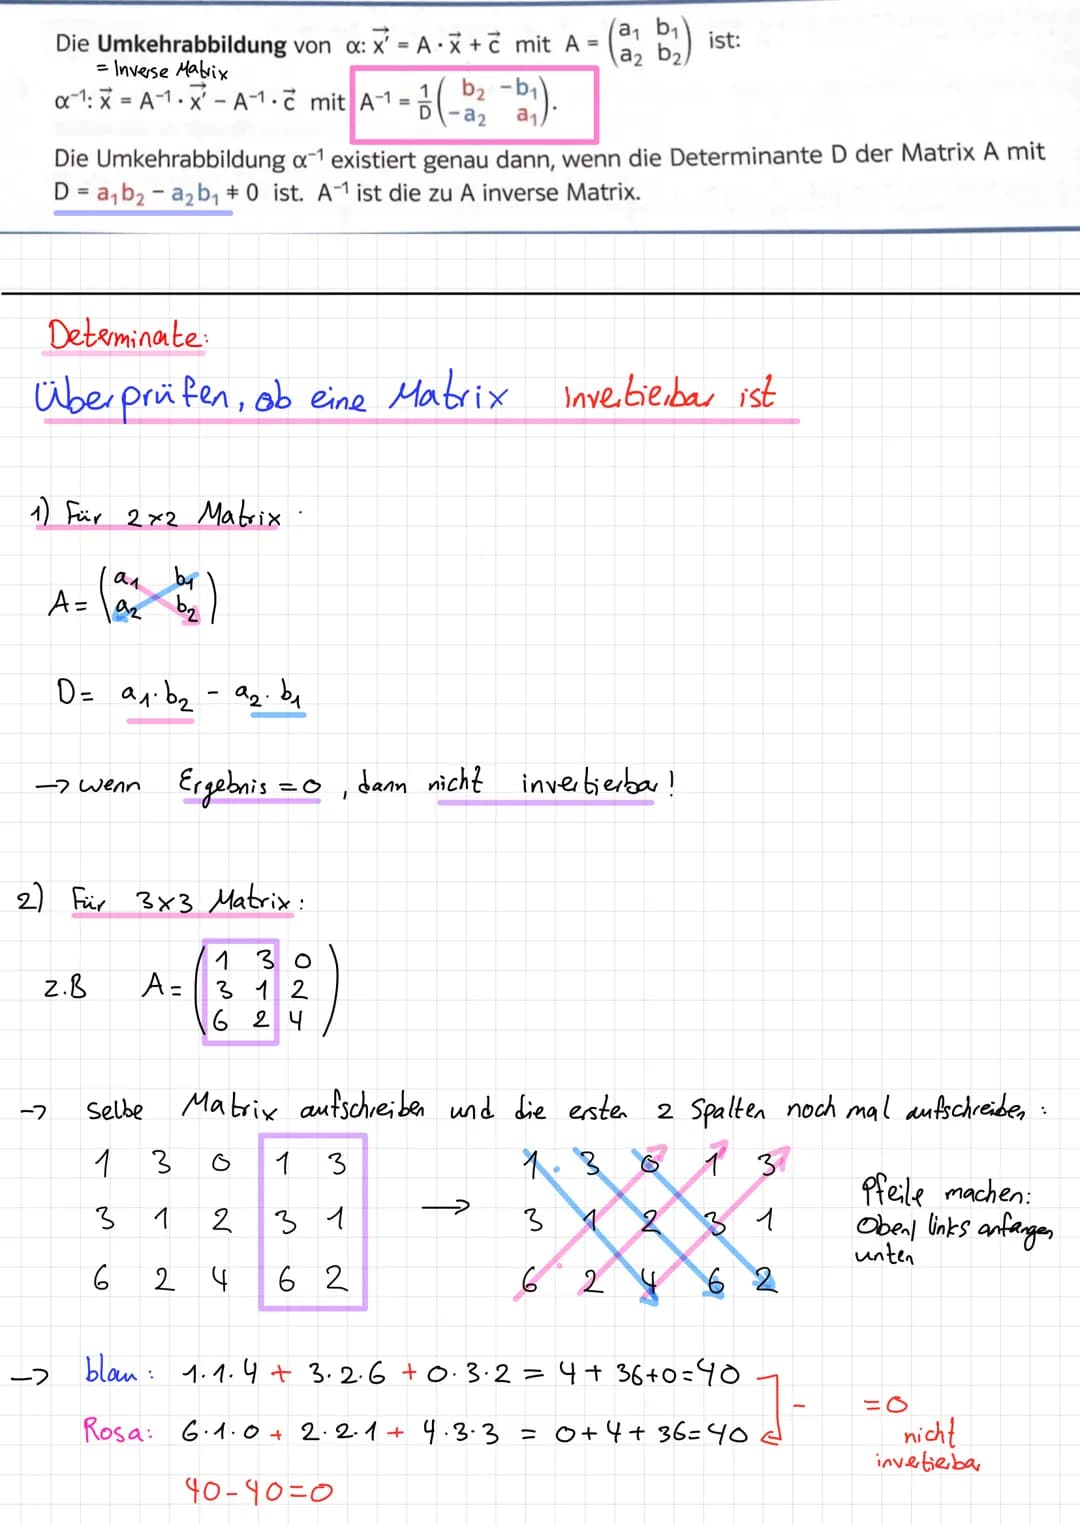 Die Umkehrabbildung von α: x⃗' = A · x⃗ + c⃗ mit A = (a₁ b₁ a₂ b₂) ist:
= Inverse Matrix
α⁻¹: x⃗ = A⁻¹ · x⃗' − A⁻¹ · c⃗ mit A⁻¹ = 1/D (b₂ −b₁ −a₂ a₁).
Die Umkehrabbildung α⁻¹ existiert genau dann, wenn die Determinante D der Matrix A mit
D = a₁b₂ − a₂b₁ ≠ 0 ist. A⁻¹ ist die zu A inverse Matrix.
Determinate:
Überprüfen, ob eine Matrix Invertierbar ist
1) Für 2×2 Matrix
A = (a₁ b₁
a₂ b₂)
D = a₁·b₂ - a₂·b₁
→ wenn Ergebnis = 0, dann nicht invertierbar!
2) Für 3×3 Matrix:
1 3 0
z.B A = 3 1 2
6 2 4
→ selbe Matrix aufschreiben und die ersten 2 Spalten noch mal aufschreiben:
1 3 0 1 3 1 3 0 1 3
3 1 2 3 1 → 3 1 2 3 1
6 2 4 6 2 6 2 4 6 2
Pfeile machen:
Oben/ links anfangen
unten
→ blau: 1·1·4 + 3·2·6 + 0·3·2 = 4 + 36+0=40
Rosa: 6·1·0 + 2·2·1 + 4·3·3 = 0+4+36=40
-
=0
nicht
invertierbar
40-40=0